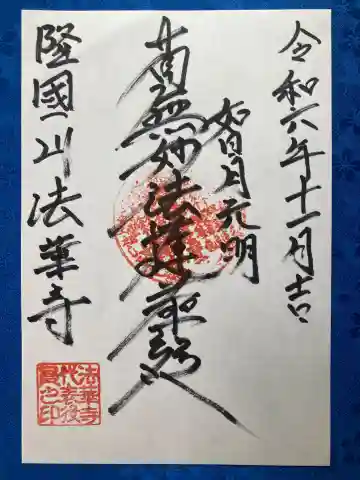 令和六年十一月吉
如日月光明
南無妙法蓮華経
隆國山法華寺
法華寺
代表役
員之印